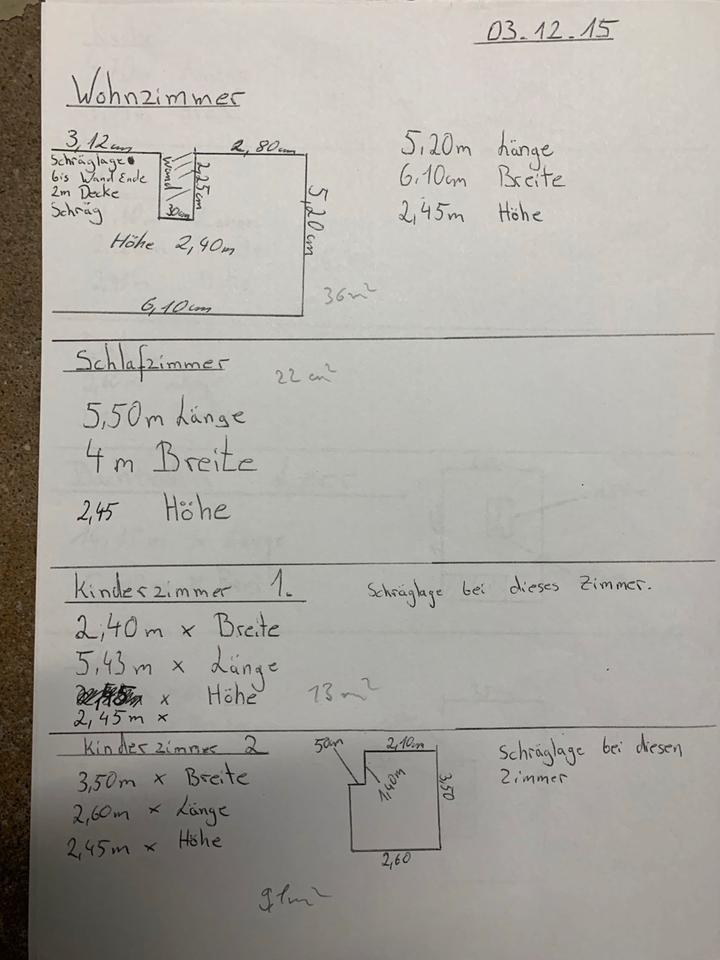 03.12.15
Wohnzimmer
3,12cm
2,80cm
Schräglage
bis Wand Ende
2m Decke
Schräg
Wand
2,25cm
30cm
5,20cm
Höhe 2,40m
6,10cm
36m²
5,20m Länge
6,10cm Breite
2,45m Höhe
Schlafzimmer
22 cm²
5,50m Länge
4 m Breite
2,45 Höhe
Kinderzimmer 1.
Schräglage bei dieses Zimmer.
2,40m x Breite
5,43m x Länge
x Höhe
2,45m x
13m²
Kinderzimmer 2
3,50m x Breite
2,60m x Länge
2,45m x Höhe
50cm
2,10m
1,40m
3,50
2,60
Schräglage bei diesen
Zimmer